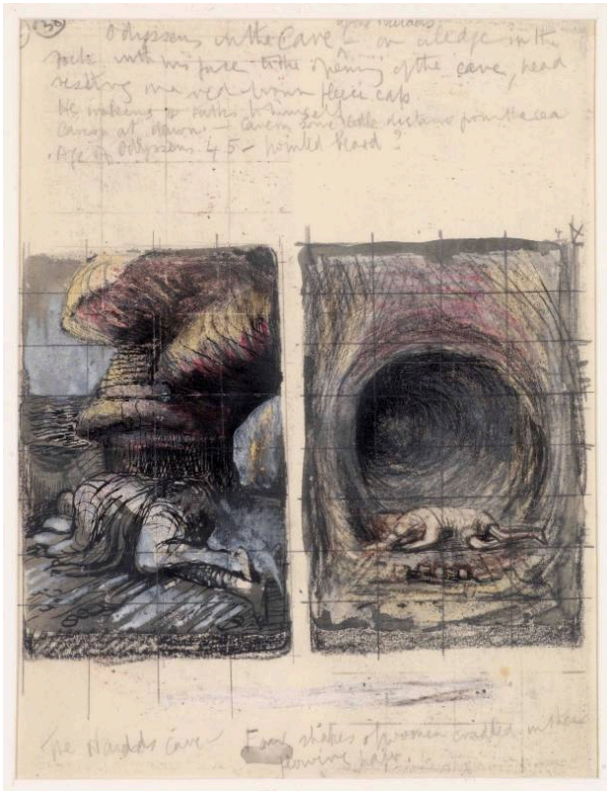 30
Odysseus in the Cave on a ledge in the
rock with his face to the opening of the cave, head
resting on a red brown fleece cap.
He wakens & talks to himself
Cavern at dawn. – Cavern some little distance from the sea
Age of Odysseus 45 – pointed beard?
The Naiads Cave Four shapes of women cradled in their
flowing hair.